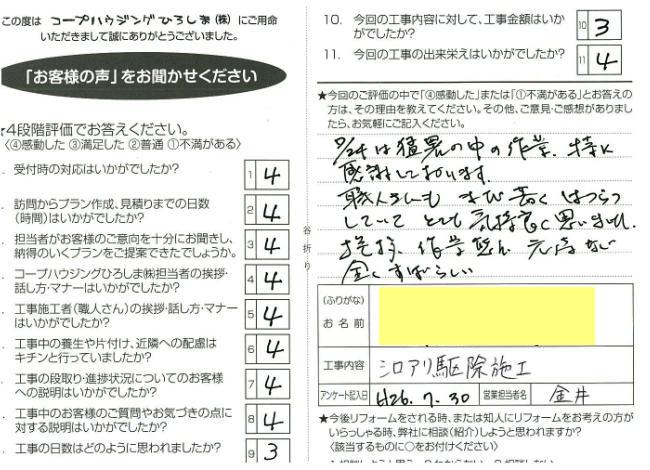 この度は コープハウジングひろしま(株) にご用命
いただきまして誠にありがとうございました。
「お客様の声」をお聞かせください
4段階評価でお答えください。
〈④感動した ③満足した ②普通 ①不満がある〉
. 受付時の対応はいかがでしたか? 1 4
. 訪問からプラン作成、見積りまでの日数
(時間)はいかがでしたか? 2 4
. 担当者がお客様のご意向を十分にお聞きし、
納得のいくプランをご提案できたでしょうか。 3 4
. コープハウジングひろしま㈱担当者の挨拶・
話し方・マナーはいかがでしたか? 4 4
. 工事施工者(職人さん)の挨拶・話し方・マナー
はいかがでしたか? 5 4
. 工事中の養生や片付け、近隣への配慮は
キチンと行っていましたか? 6 4
. 工事の段取り・進捗状況についてのお客様
への説明はいかがでしたか? 7 4
. 工事中のお客様のご質問やお気づきの点に
対する説明はいかがでしたか? 8 4
. 工事の日数はどのように思われましたか? 9 3
谷折り
10. 今回の工事内容に対して、工事金額はいか
がでしたか? 10 3
11. 今回の工事の出来栄えはいかがでしたか? 11 4
★今回のご評価の中で「④感動した」または「①不満がある」とお答えの
方は、その理由を教えてください。その他、ご意見・ご感想がありまし
たら、お気軽にご記入ください。
7/24は猛暑の中の作業、特に
感謝しております。
職人さんも 若く はつらつ
していて とても 気持良く思いました。
挨拶、作業
全くすばらしい
(ふりがな)
お名前
工事内容 シロアリ駆除施工
アンケート記入日 H26.7.30 営業担当者名 金井
★今後リフォームをされる時、または知人にリフォームをお考えの方が
いらっしゃる時、弊社に相談(紹介)しようと思われますか?
〈該当するものに○をお付けください〉